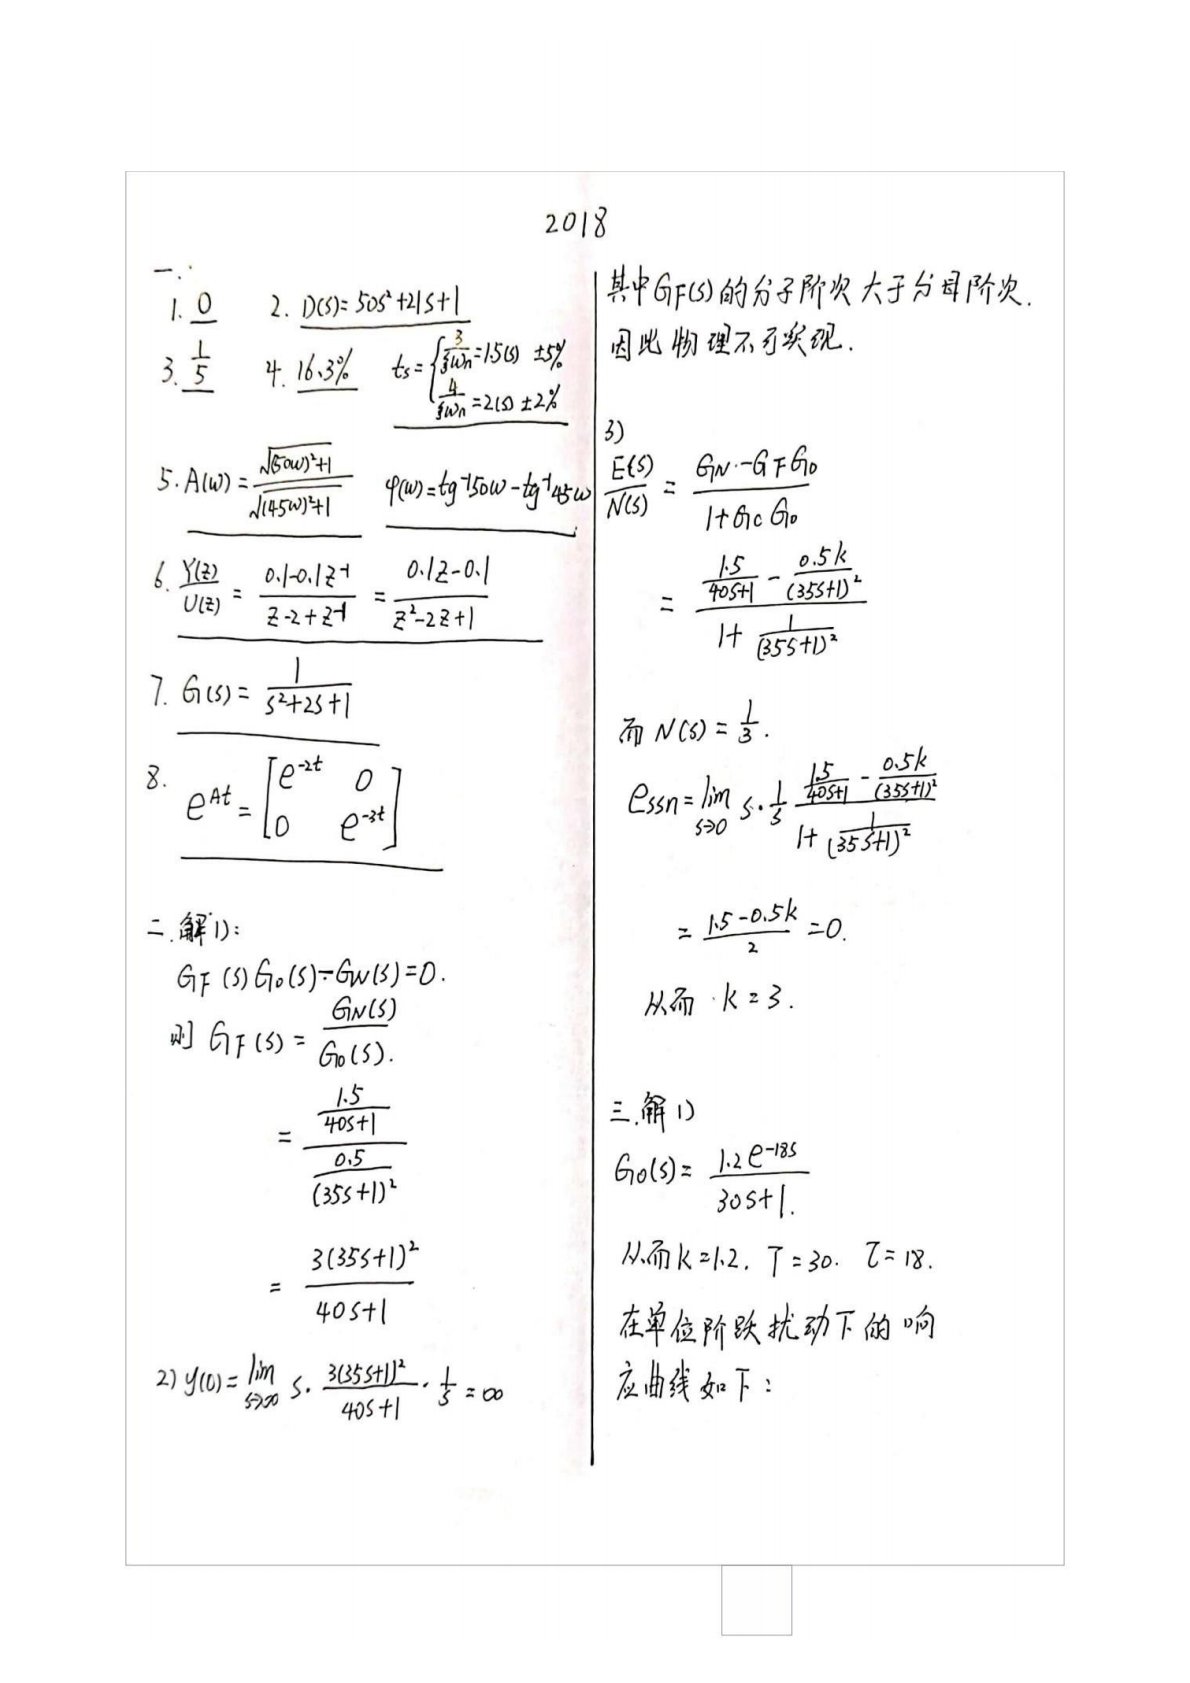 2018
一.
1. 0 2. D(s)=50s²+21s+1
3. 1/5 4. 16.3% ts={3/ξωn=1.5(s) ±5%
4/ξωn=2(s) ±2%
5. A(ω)=√((50ω)²+1)/√((45ω)²+1) φ(ω)=tg⁻¹50ω-tg⁻¹45ω
6. Y(z)/U(z) = (0.1-0.1z⁻¹)/(z-2+z⁻¹) = (0.1z-0.1)/(z²-2z+1)
7. G(s)= 1/(s²+2s+1)
8. e^{At}=[e^{-2t} 0
0 e^{-3t}]
二.解1):
GF(s)G0(s)-GN(s)=0.
则 GF(s)= GN(s)/G0(s).
= (1.5/(40s+1))/(0.5/(35s+1)²)
= 3(35s+1)²/(40s+1)
2) y(0)=lim s→∞ s·3(35s+1)²/(40s+1)·1/s=∞
其中GF(s)的分子阶次大于分母阶次.
因此物理不可实现.
3)
E(s)/N(s) = (GN-GFG0)/(1+GcG0)
= (1.5/(40s+1) - 0.5k/(35s+1)²)/(1+ 1/(35s+1)²)
而 N(s)=1/3.
essn=lim s→0 s·1/s (1.5/(40s+1) - 0.5k/(35s+1)²)/(1+ 1/(35s+1)²)
= (1.5-0.5k)/2 =0.
从而 k=3.
三.解1)
G0(s)= 1.2e^{-18s}/(30s+1).
从而k=1.2. T=30. τ=18.
在单位阶跃扰动下的响
应曲线如下: